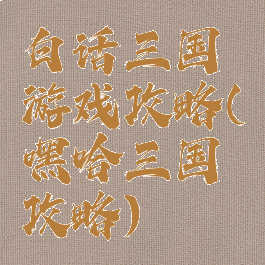 白话三国
游戏攻略(
嘿哈三国
攻略)